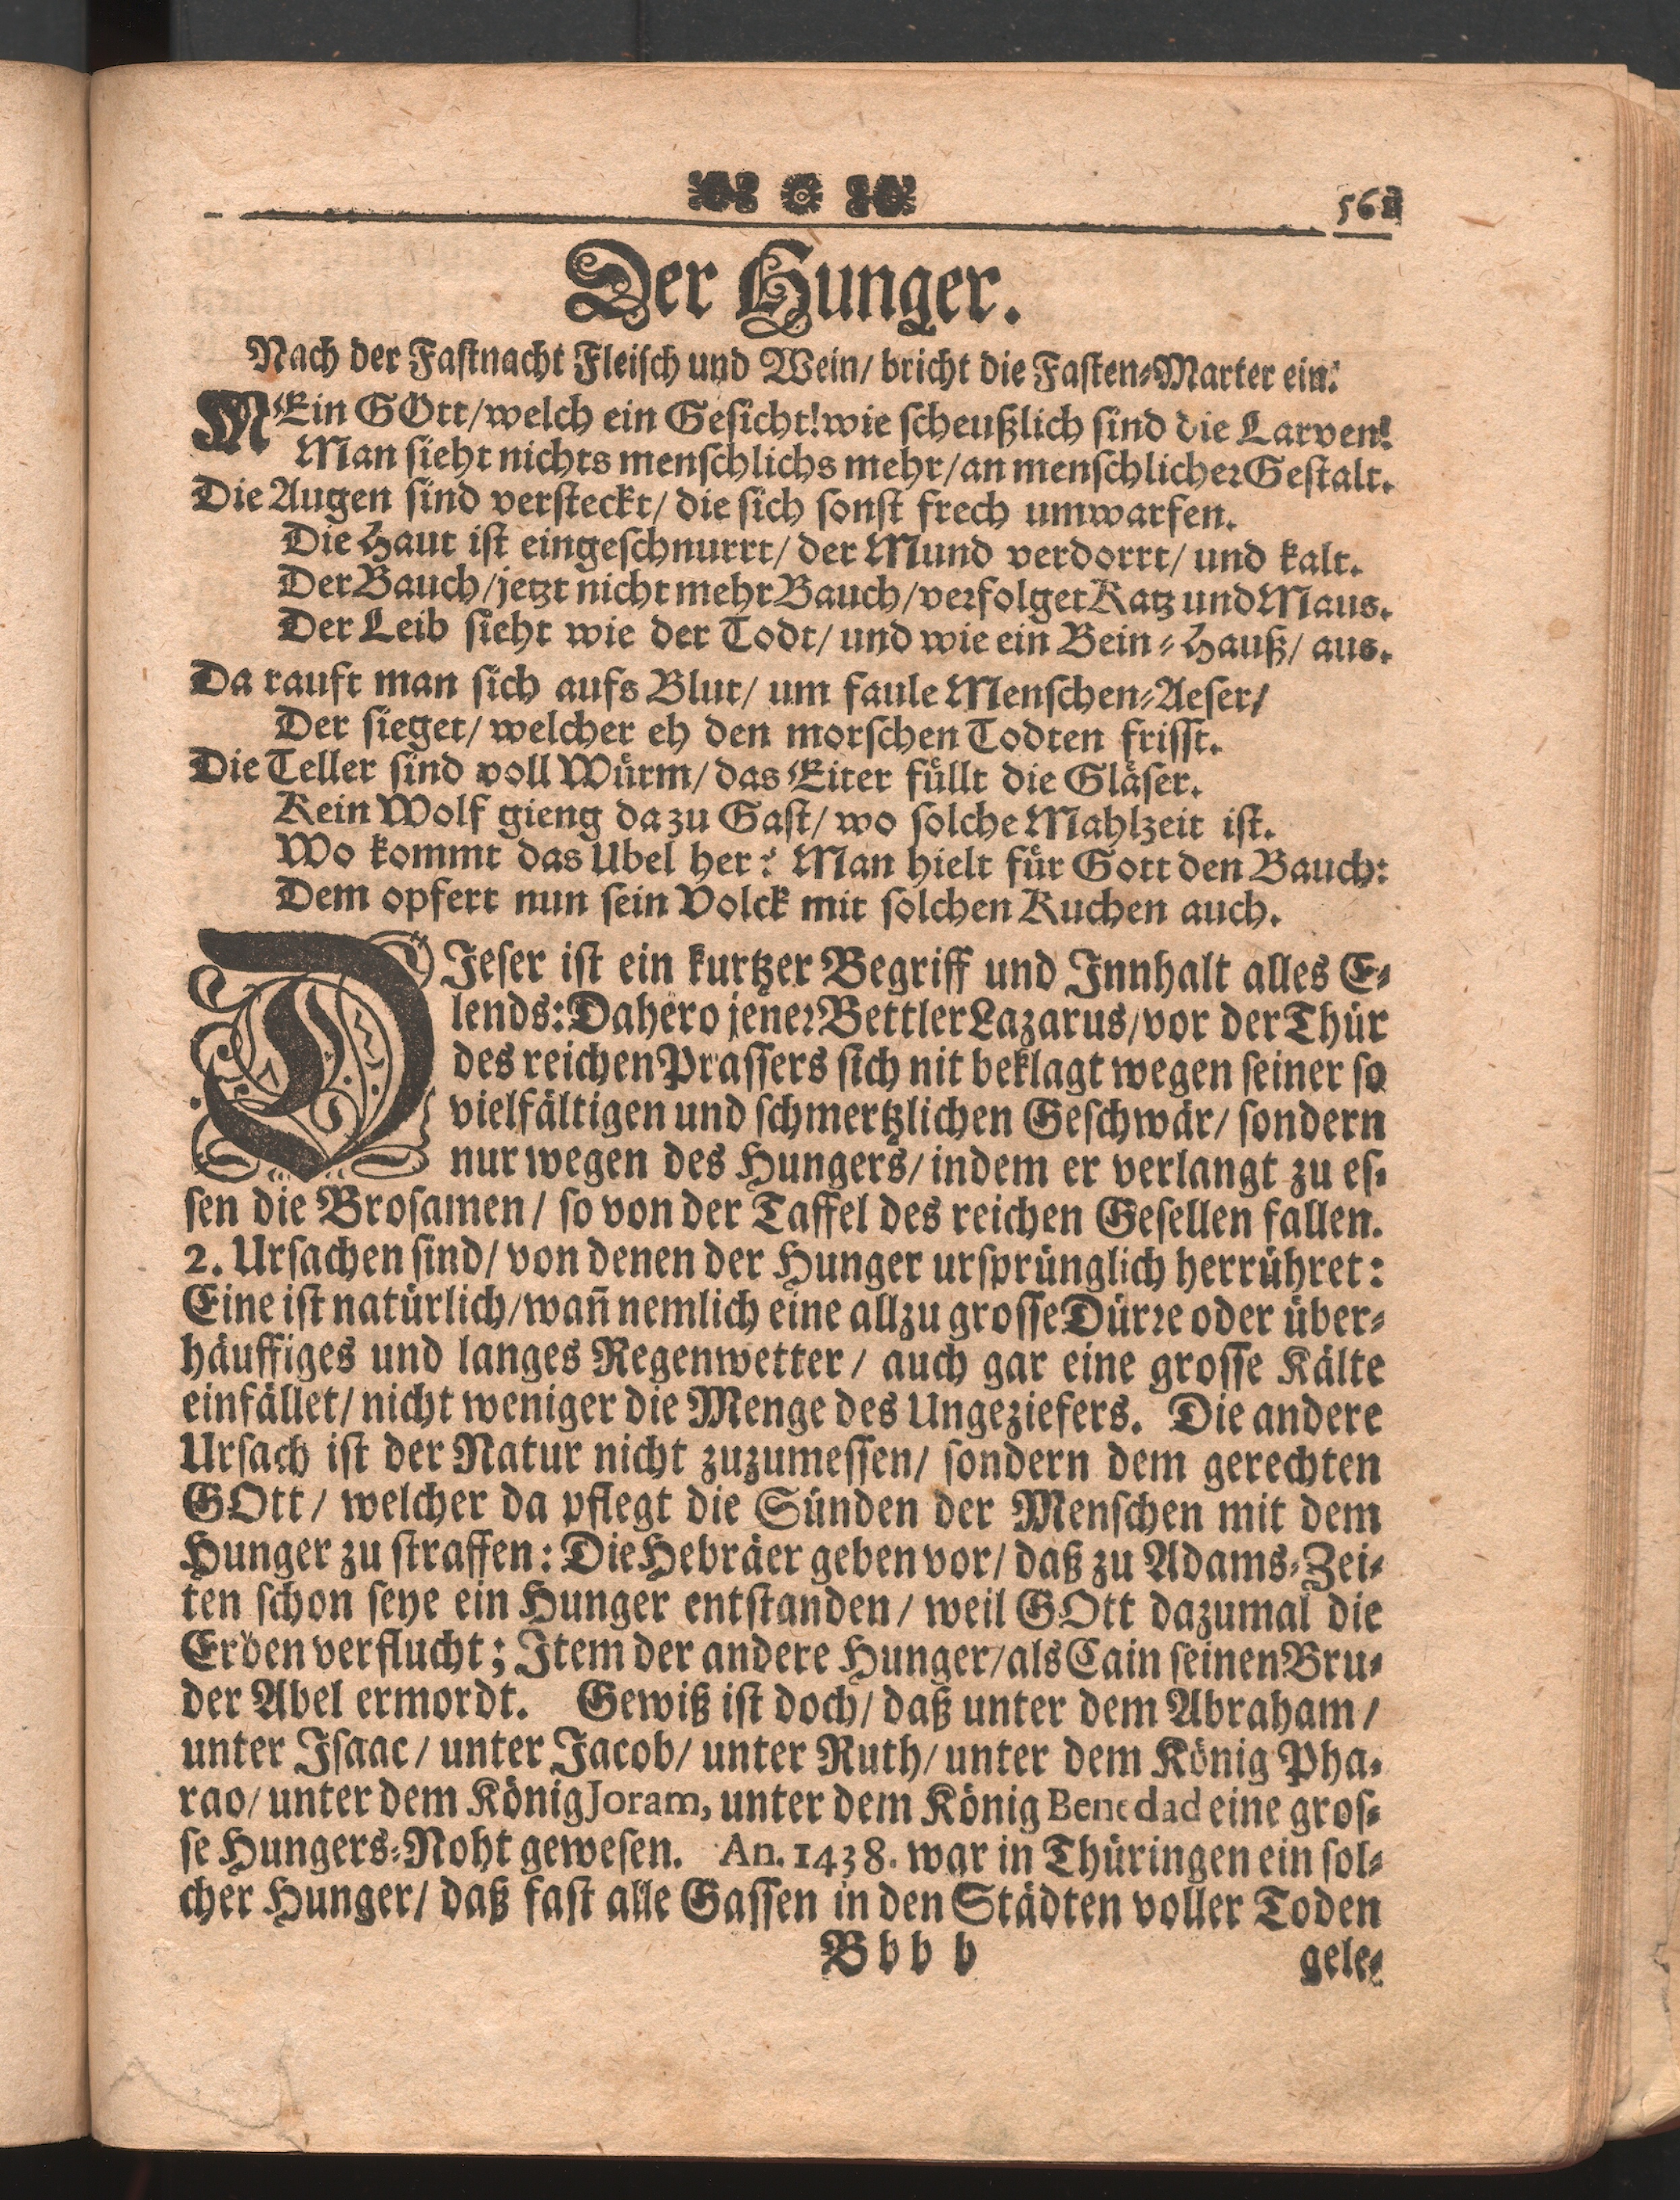 561
Der Hunger.
Nach der Faſtnacht Fleiſch und Wein/ bricht die Faſten-Marter ein.
MEin GOtt/ welch ein Geſicht! wie ſcheußlich ſind die Larven!
Man ſieht nichts menſchlichs mehr/ an menſchlicher Geſtalt.
Die Augen ſind verſteckt/ die ſich ſonſt frech umwarfen.
Die Haut iſt eingeſchnurrt/ der Mund verdorrt/ und kalt.
Der Bauch/ jetzt nicht mehr Bauch/ verfolget Katz und Maus.
Der Leib ſieht wie der Todt/ und wie ein Bein-Hauß/ aus.
Da rauft man ſich aufs Blut/ um faule Menſchen-Aeſer/
Der ſieget/ welcher eh den morſchen Todten friſſt.
Die Teller ſind voll Wuͤrm/ das Eiter fuͤllt die Glaͤſer.
Kein Wolf gieng da zu Gaſt/ wo ſolche Mahlzeit iſt.
Wo kommt das Ubel her? Man hielt fuͤr Gott den Bauch:
Dem opfert nun ſein Volck mit ſolchen Kuchen auch.
DIeſer iſt ein kurtzer Begriff und Innhalt alles E-
lends: Dahero jener Bettler Lazarus/ vor der Thuͤr
des reichen Praſſers ſich nit beklagt wegen ſeiner ſo
vielfaͤltigen und ſchmertzlichen Geſchwaͤr/ ſondern
nur wegen des Hungers/ indem er verlangt zu eſ-
ſen die Broſamen/ ſo von der Taffel des reichen Geſellen fallen.
2. Urſachen ſind/ von denen der Hunger urſpruͤnglich herruͤhret:
Eine iſt natuͤrlich/ wañ nemlich eine allzu groſſe Duͤrre oder uͤber-
haͤuffiges und langes Regenwetter/ auch gar eine groſſe Kaͤlte
einfaͤllet/ nicht weniger die Menge des Ungeziefers. Die andere
Urſach iſt der Natur nicht zuzumeſſen/ ſondern dem gerechten
GOtt/ welcher da pflegt die Suͤnden der Menſchen mit dem
Hunger zu ſtraffen: Die Hebraͤer geben vor/ daß zu Adams-Zei-
ten ſchon ſeye ein Hunger entſtanden/ weil GOtt dazumal die
Erden verflucht; Item der andere Hunger/ als Cain ſeinen Bru-
der Abel ermordt. Gewiß iſt doch/ daß unter dem Abraham/
unter Iſaac/ unter Jacob/ unter Ruth/ unter dem Koͤnig Pha-
rao/ unter dem Koͤnig Joram, unter dem Koͤnig Benedad eine groſ-
ſe Hungers-Noht geweſen. An. 1438. war in Thuͤringen ein ſol-
cher Hunger/ daß faſt alle Gaſſen in den Staͤdten voller Toden
Bbbb
gele-